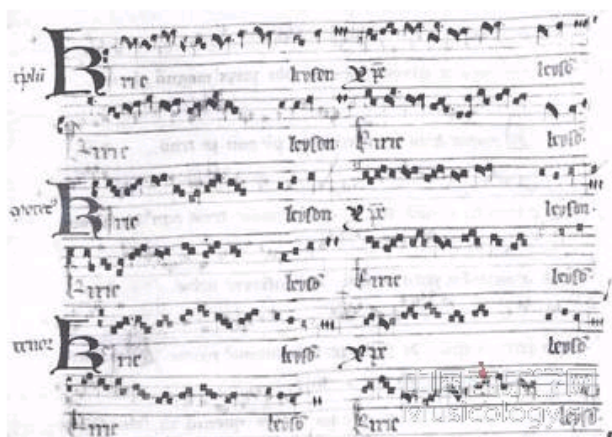 t'plū Kirie leyson xp̄e leysō
Kirie leyson Kirie leysō
motet' Kirie leyson xp̄e leysō
Kirie leysō Kirie leysō
tenor Kirie leysō xp̄e leysō
Kirie leysō Kirie leysō
Musicology